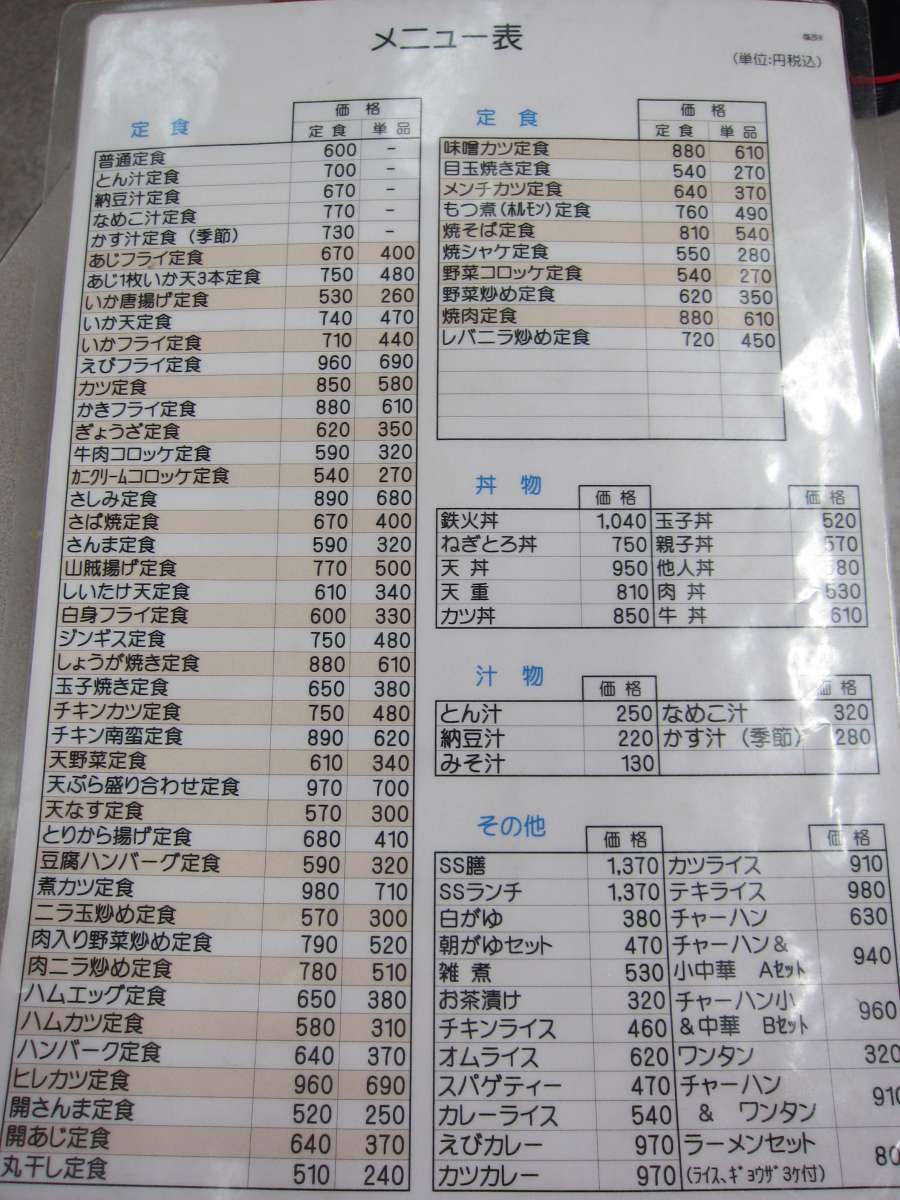 メニュー表
(単位:円税込)
定 食
価 格
定 食 単 品
普通定食 600 -
とん汁定食 700 -
納豆汁定食 670 -
なめこ汁定食 770 -
かす汁定食 (季節) 730 -
あじフライ定食 670 400
あじ1枚いか天3本定食 750 480
いか唐揚げ定食 530 260
いか天定食 740 470
いかフライ定食 710 440
えびフライ定食 960 690
カツ定食 850 580
かきフライ定食 880 610
ぎょうざ定食 620 350
牛肉コロッケ定食 590 320
カニクリームコロッケ定食 540 270
さしみ定食 890 680
さば焼定食 670 400
さんま定食 590 320
山賊揚げ定食 770 500
しいたけ天定食 610 340
白身フライ定食 600 330
ジンギス定食 750 480
しょうが焼き定食 880 610
玉子焼き定食 650 380
チキンカツ定食 750 480
チキン南蛮定食 890 620
天野菜定食 610 340
天ぷら盛り合わせ定食 970 700
天なす定食 570 300
とりから揚げ定食 680 410
豆腐ハンバーグ定食 590 320
煮カツ定食 980 710
ニラ玉炒め定食 570 300
肉入り野菜炒め定食 790 520
肉ニラ炒め定食 780 510
ハムエッグ定食 650 380
ハムカツ定食 580 310
ハンバーク定食 640 370
ヒレカツ定食 960 690
開さんま定食 520 250
開あじ定食 640 370
丸干し定食 510 240
定 食
価 格
定 食 単 品
味噌カツ定食 880 610
目玉焼き定食 540 270
メンチカツ定食 640 370
もつ煮(ホルモン)定食 760 490
焼そば定食 810 540
焼シャケ定食 550 280
野菜コロッケ定食 540 270
野菜炒め定食 620 350
焼肉定食 880 610
レバニラ炒め定食 720 450
丼 物
価 格 価 格
鉄火丼 1,040 玉子丼 520
ねぎとろ丼 750 親子丼 570
天 丼 950 他人丼 580
天 重 810 肉 丼 530
カツ丼 850 牛 丼 610
汁 物
価 格 価 格
とん汁 250 なめこ汁 320
納豆汁 220 かす汁 (季節) 280
みそ汁 130
その他
価 格 価 格
SS膳 1,370 カツライス 910
SSランチ 1,370 テキライス 980
白がゆ 380 チャーハン 630
朝がゆセット 470 チャーハン&
雑 煮 530 小中華 Aセット 940
お茶漬け 320 チャーハン小
チキンライス 460 &中華 Bセット 960
オムライス 620 ワンタン 320
スパゲティー 470 チャーハン
カレーライス 540 & ワンタン 910
えびカレー 970 ラーメンセット
カツカレー 970 (ライス、ギョウザ3ケ付) 80